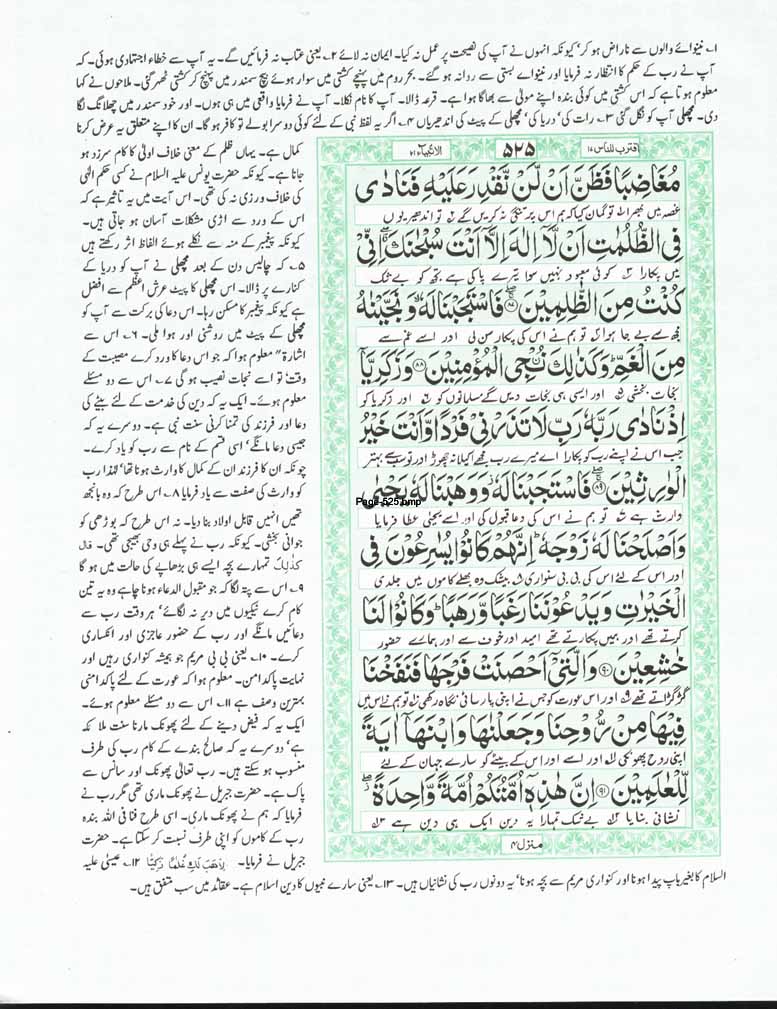 ۱۔ نینوائے والوں سے ناراض ہو کر' کیونکہ انہوں نے آپ کی نصیحت پر عمل نہ کیا۔ ایمان نہ لائے ۲۔ یعنی عتاب نہ فرمائیں گے۔ یہ آپ سے خطاء اجتہادی ہوئی۔ کہ
آپ نے رب کے حکم کا انتظار نہ فرمایا اور نینوائے بستی سے روانہ ہو گئے۔ بحر روم میں پہنچے کشتی میں سوار ہوئے بیچ سمندر میں پہنچ کر کشتی ٹھہر گئی۔ ملاحوں نے کہا
معلوم ہوتا ہے کہ اس کشتی میں کوئی بندہ اپنے مولیٰ سے بھاگا ہوا ہے۔ قرعہ ڈالا۔ آپ کا نام نکلا۔ آپ نے فرمایا واقعی میں ہی ہوں۔ اور خود سمندر میں چھلانگ لگا
دی۔ مچھلی آپ کو نگل گئی ۳۔ رات کی' دریا کی' مچھلی کے پیٹ کی اندھیریاں ۴۔ اگر یہ لفظ نبی کے لئے کوئی دوسرا بولے تو کافر ہو گا۔ ان کا اپنے متعلق یہ عرض کرنا
کمال ہے۔ یہاں ظلم کے معنی خلاف اولیٰ کا کام سرزد ہو
جانا ہے۔ کیونکہ حضرت یونس علیہ السلام نے کسی حکم الٰہی
کی خلاف ورزی نہ کی تھی۔ اس آیت میں یہ تاثیر ہے کہ
اس کے ورد سے اڑی مشکلات آسان ہو جاتی ہیں۔
کیونکہ پیغمبر کے منہ سے نکلے ہوئے الفاظ اثر رکھتے ہیں
۵۔ کہ چالیس دن کے بعد مچھلی نے آپ کو دریا کے
کنارے پر ڈالا۔ اس مچھلی کا پیٹ عرش اعظم سے افضل
ہے کیونکہ پیغمبر کا مسکن رہا۔ اس دعا کی برکت سے آپ کو
مچھلی کے پیٹ میں روشنی اور ہوا ملی۔ ۶۔ اس سے
اشارۃً معلوم ہوا کہ جو اس دعا کا ورد کرے مصیبت کے
وقت' تو اسے نجات نصیب ہو گی ۷۔ اس سے دو مسئلے
معلوم ہوئے۔ ایک یہ کہ دین کی خدمت کے لئے بیٹے کی
دعا اور فرزند کی تمنا کرنی سنت نبی ہے۔ دوسرے یہ کہ
جیسی دعا مانگے' اسی قسم کے نام سے رب کو یاد کرے۔
چونکہ ان کا فرزند ان کے کمال کا وارث ہونا تھا' لہٰذا رب
کو وارث کی صفت سے یاد فرمایا ۸۔ اس طرح کہ وہ بانجھ
تھیں انہیں قابل اولاد بنا دیا۔ نہ اس طرح کہ بوڑھی کو
جوانی بخشی۔ کیونکہ رب نے پہلے ہی وحی بھیجی تھی۔ قال
کذٰلک تمہارے بچہ ایسے ہی بڑھاپے کی حالت میں ہو گا
۹۔ اس سے پتہ لگا کہ جو مقبول الدعاء ہونا چاہے وہ یہ تین
کام کرے نیکیوں میں دیر نہ لگائے' ہر وقت رب سے
دعائیں مانگے اور رب کے حضور عاجزی اور انکساری
کرے۔ ۱۰۔ یعنی بی بی مریم جو ہمیشہ کنواری رہیں اور
نہایت پاکدامن۔ معلوم ہوا کہ عورت کے لئے پاکدامنی
بہترین وصف ہے ۱۱۔ اس سے دو مسئلے معلوم ہوئے۔
ایک یہ کہ فیض دینے کے لئے پھونک مارنا سنت ملائکہ
ہے' دوسرے یہ کہ صالح بندے کے کام رب کی طرف
منسوب ہو سکتے ہیں۔ رب تعالیٰ پھونک اور سانس سے
پاک ہے۔ حضرت جبریل نے پھونک ماری تھی مگر رب نے
فرمایا کہ ہم نے پھونک ماری۔ اسی طرح فنا فی اللہ بندہ
رب کے کاموں کو اپنی طرف نسبت کر سکتا ہے۔ حضرت
جبریل نے فرمایا۔ لِاَهَبَ لَكِ غُلٰمًا زَكِيًّا ۱۲۔ عیسیٰ علیہ
السلام کا بغیر باپ پیدا ہونا اور کنواری مریم سے بچہ ہونا' یہ دونوں رب کی نشانیاں ہیں۔ ۱۳۔ یعنی سارے نبیوں کا دین اسلام ہے۔ عقائد میں سب متفق ہیں۔
اقترب للناس ۱۷ ۵۲۵ الانبیاء ۲۱
مُغَاضِبًا فَظَنَّ اَنْ لَّنْ نَّقْدِرَ عَلَيْهِ فَنَادٰى
غصہ میں بھرا ۱ تو گمان کیا کہ ہم اس پر تنگی نہ کریں گے ۲ تو اندھیریوں
فِى الظُّلُمٰتِ اَنْ لَّاۤ اِلٰهَ اِلَّاۤ اَنْتَ سُبْحٰنَكَ اِنِّىْ
میں پکارا ۳ کوئی معبود نہیں سوا تیرے پاکی ہے تجھ کو بے شک
كُنْتُ مِنَ الظّٰلِمِيْنَ ۸۷ فَاسْتَجَبْنَا لَهٗ وَنَجَّيْنٰهُ
مجھ سے بے جا ہوا ۴ تو ہم نے اس کی پکار سن لی اور اسے غم سے
مِنَ الْغَمِّ وَكَذٰلِكَ نُـنْۨجِى الْمُؤْمِنِيْنَ ۸۸ وَزَكَرِيَّاۤ
نجات بخشی ۵ اور ایسی ہی نجات دیں گے مسلمانوں کو ۶ اور زکریا کو
اِذْ نَادٰى رَبَّهٗ رَبِّ لَا تَذَرْنِىْ فَرْدًا وَّاَنْتَ خَيْرُ
جب اس نے اپنے رب کو پکارا اے میرے رب مجھے اکیلا نہ چھوڑ اور تو سب سے بہتر
الْوٰرِثِيْنَ ۸۹ فَاسْتَجَبْنَا لَهٗ وَوَهَبْنَا لَهٗ يَحْيٰى
Page-525.bmp
وارث ہے ۷ تو ہم نے اس کی دعا قبول کی اور اسے یحییٰ عطا فرمایا
وَاَصْلَحْنَا لَهٗ زَوْجَهٗ اِنَّهُمْ كَانُوْا يُسٰرِعُوْنَ فِى
اور اس کے لئے اس کی بی بی سنواری ۸ بیشک وہ بھلے کاموں میں جلدی
الْخَيْرٰتِ وَيَدْعُوْنَنَا رَغَبًا وَّرَهَبًا وَكَانُوْا لَنَا
کرتے تھے اور ہمیں پکارتے تھے امید اور خوف سے اور ہمارے حضور
خٰشِعِيْنَ ۹۰ وَالَّتِىْۤ اَحْصَنَتْ فَرْجَهَا فَنَفَخْنَا
گڑگڑاتے تھے ۹ اور اس عورت کو جس نے اپنی پارسائی نگاہ رکھی ۱۰ تو ہم نے اس میں
فِيْهَا مِنْ رُّوْحِنَا وَجَعَلْنٰهَا وَابْنَهَاۤ اٰيَةً
اپنی روح پھونکی ۱۱ اور اسے اور اس کے بیٹے کو سارے جہان کے لئے
لِّلْعٰلَمِيْنَ ۹۱ اِنَّ هٰذِهٖۤ اُمَّتُكُمْ اُمَّةً وَّاحِدَةً
نشانی بنایا ۱۲ بے شک تمہارا یہ دین ایک ہی دین ہے ۱۳
منزل ۴